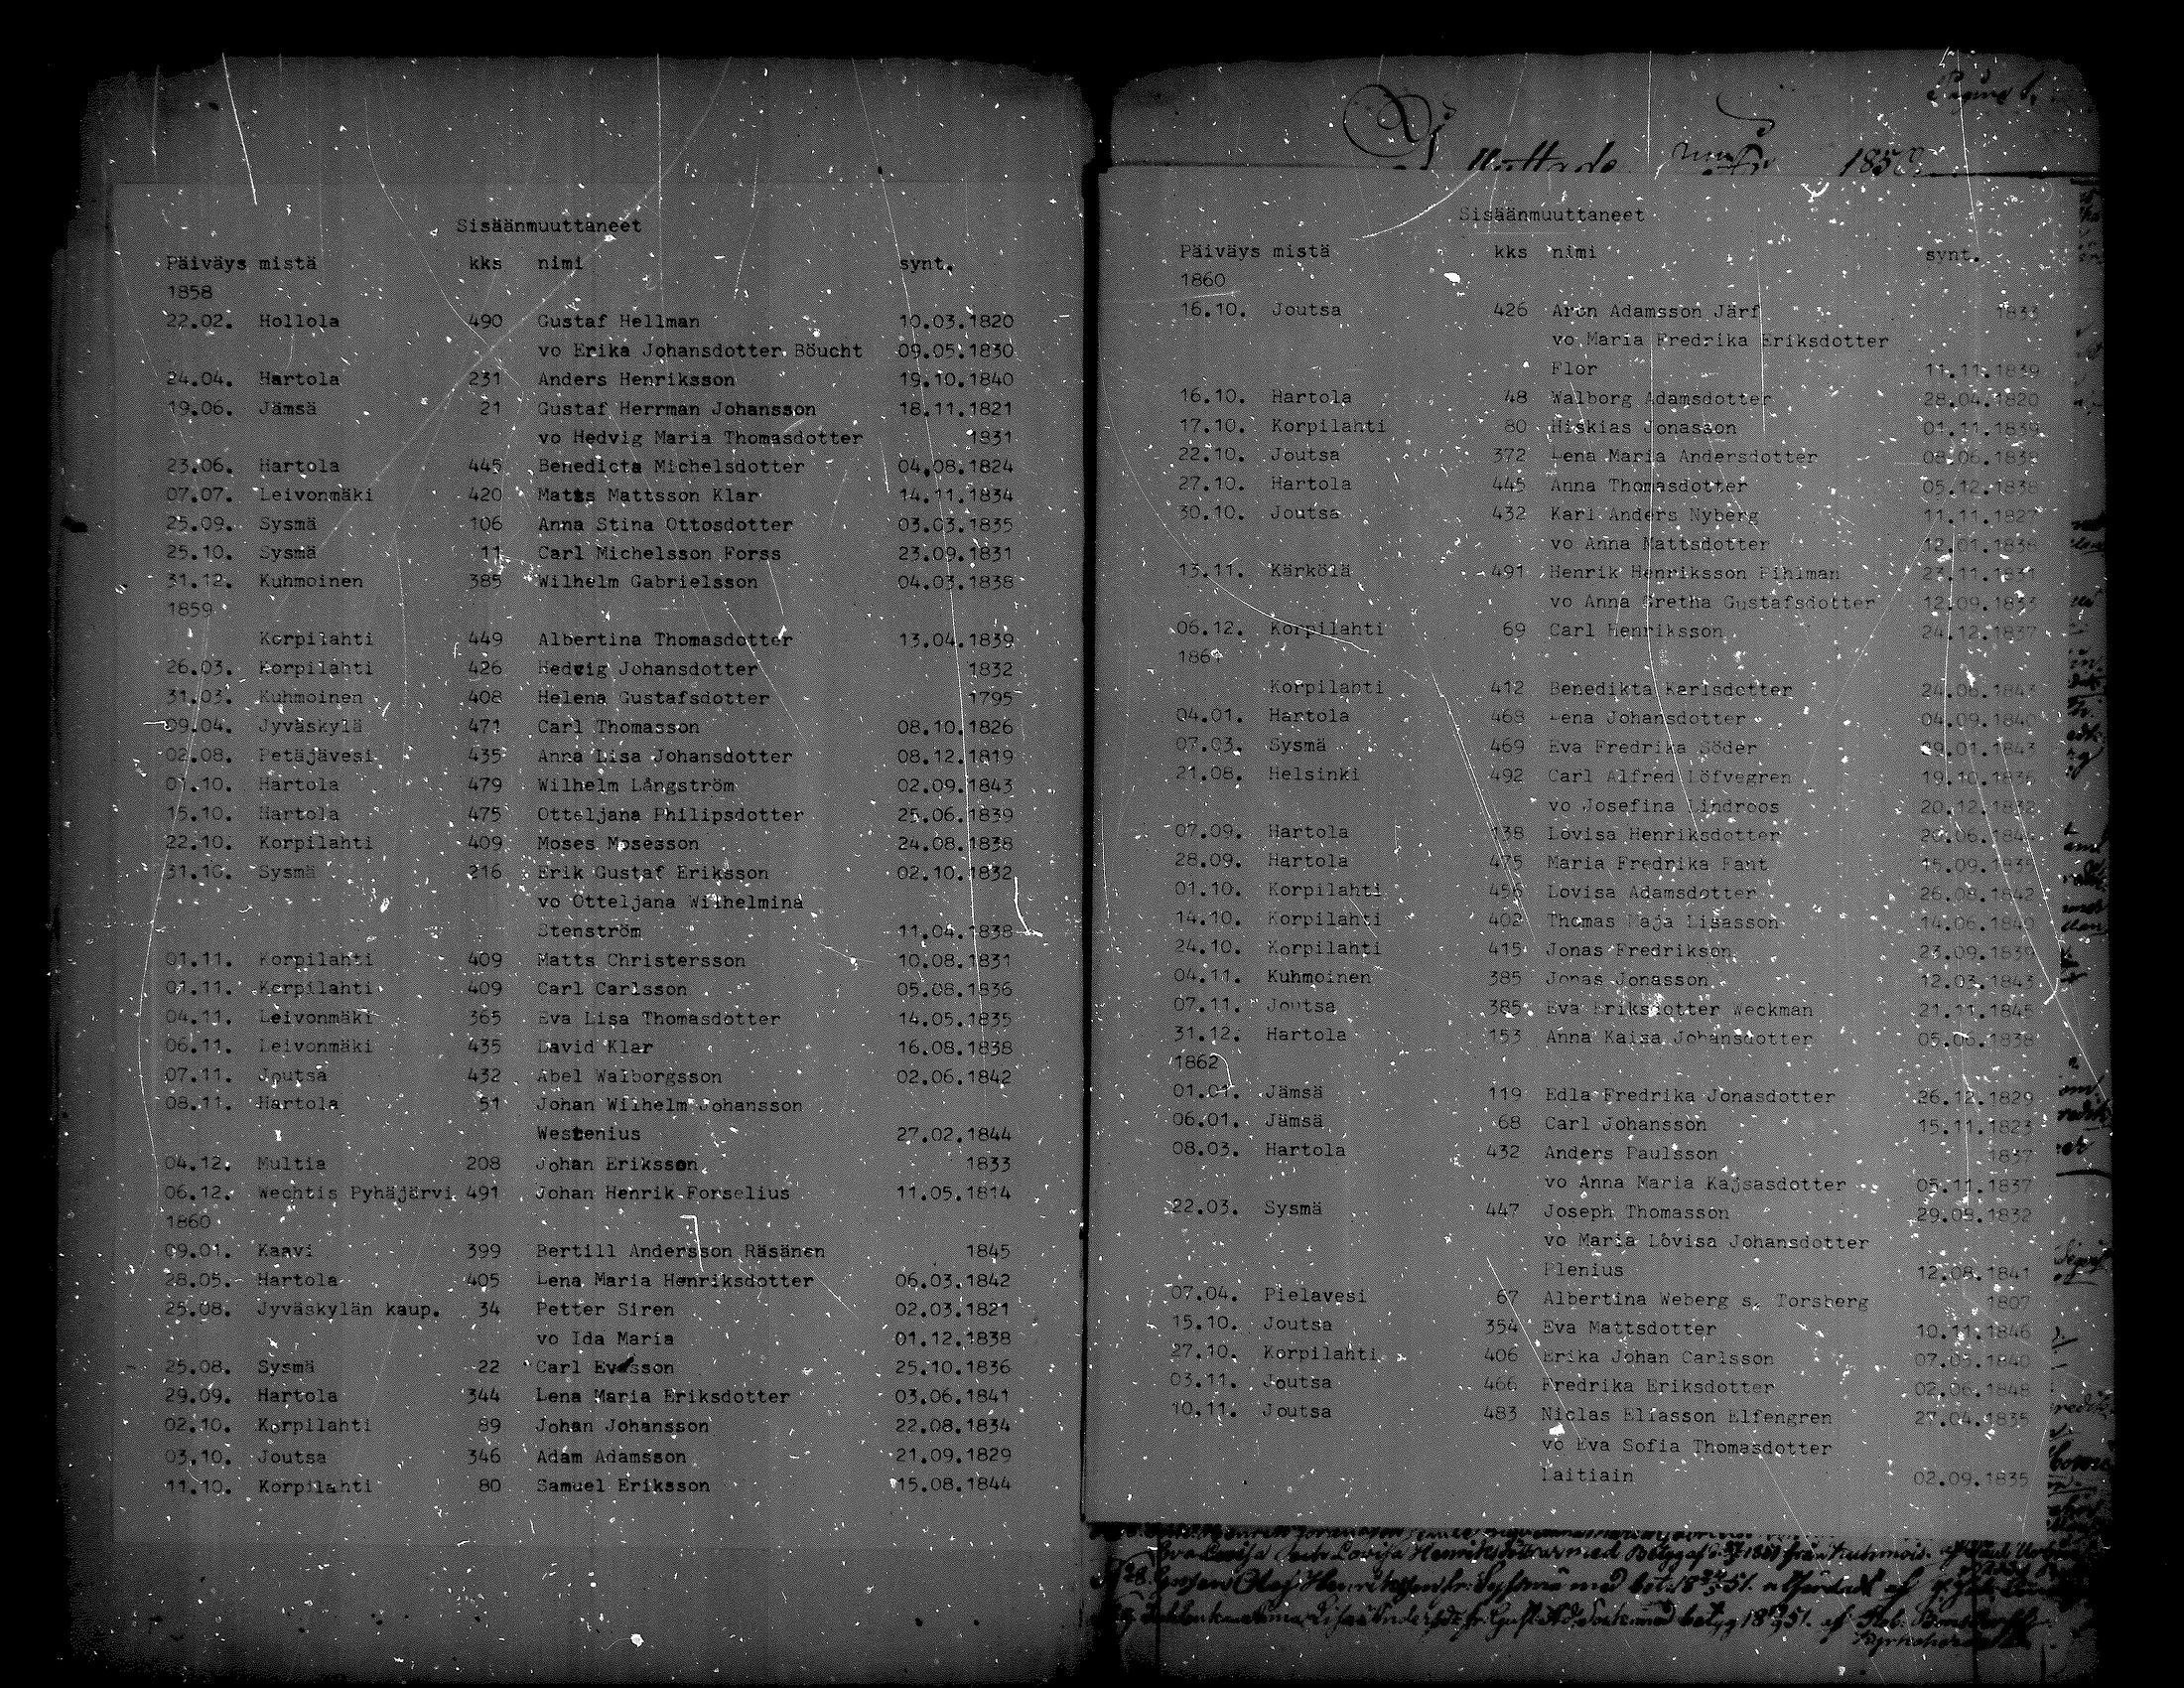 Sisäänmuuttaneet
Päiväys mistä kks nimi synt.
1858
22.02. Hollola 490 Gustaf Hellman 10.03.1820
vo Erika Johansdotter Böucht 09.05.1830
24.04. Hartola 231 Anders Henriksson 19.10.1840
19.06. Jämsä 21 Gustaf Herrman Johansson 18.11.1821
vo Hedvig Maria Thomasdotter 1831
23.06. Hartola 445 Benedicta Michelsdotter 04.08.1824
07.07. Leivonmäki 420 Matts Mattsson Klar 14.11.1834
25.09. Sysmä 106 Anna Stina Ottosdotter 03.03.1835
25.10. Sysmä 11 Carl Michelsson Forss 23.09.1831
31.12. Kuhmoinen 385 Wilhelm Gabrielsson 04.03.1838
1859
Korpilahti 449 Albertina Thomasdotter 13.04.1839
26.03. Korpilahti 426 Hedvig Johansdotter 1832
31.03. Kuhmoinen 408 Helena Gustafsdotter 1795
09.04. Jyväskylä 471 Carl Thomasson 08.10.1826
02.08. Petäjävesi 435 Anna Lisa Johansdotter 08.12.1819
01.10. Hartola 479 Wilhelm Långström 02.09.1843
15.10. Hartola 475 Otteljana Philipsdotter 25.06.1839
22.10. Korpilahti 409 Moses Mosesson 24.08.1838
31.10. Sysmä 216 Erik Gustaf Eriksson 02.10.1832
vo Otteljana Wilhelmina
Stenström 11.04.1838
01.11. Korpilahti 409 Matts Christersson 10.08.1831
01.11. Korpilahti 409 Carl Carlsson 05.08.1836
04.11. Leivonmäki 365 Eva Lisa Thomasdotter 14.05.1835
06.11. Leivonmäki 435 David Klar 16.08.1838
07.11. Joutsa 432 Abel Walborgsson 02.06.1842
08.11. Hartola 51 Johan Wilhelm Johansson
Westenius 27.02.1844
04.12. Multia 208 Johan Eriksson 1833
06.12. Wechtis Pyhäjärvi 491 Johan Henrik Forselius 11.05.1814
1860
09.01. Kaavi 399 Bertill Andersson Räsänen 1845
28.05. Hartola 405 Lena Maria Henriksdotter 06.03.1842
25.08. Jyväskylän kaup. 34 Petter Siren 02.03.1821
vo Ida Maria 01.12.1838
25.08. Sysmä 22 Carl Evasson 25.10.1836
29.09. Hartola 344 Lena Maria Eriksdotter 03.06.1841
02.10. Korpilahti 89 Johan Johansson 22.08.1834
03.10. Joutsa 346 Adam Adamsson 21.09.1829
11.10. Korpilahti 80 Samuel Eriksson 15.08.1844
Pagina 1.
Sisäänmuuttaneet
Päiväys mistä kks nimi synt.
1860
16.10. Joutsa 426 Aron Adamsson Järf 1833
vo Maria Fredrika Eriksdotter
Flor 11.11.1839
16.10. Hartola 48 Walborg Adamsdotter 28.04.1820
17.10. Korpilahti 80 Hiskias Jonasson 01.11.1839
22.10. Joutsa 372 Lena Maria Andersdotter 08.06.1839
27.10. Hartola 445 Anna Thomasdotter 05.12.1838
30.10. Joutsa 432 Karl Anders Nyberg 11.11.1827
vo Anna Mattsdotter 12.01.1838
13.11. Kärkölä 491 Henrik Henriksson Pihlman 23.11.1831
vo Anna Gretha Gustafsdotter 12.09.1833
06.12. Korpilahti 69 Carl Henriksson 24.12.1837
1861
Korpilahti 412 Benedikta Karlsdotter 24.06.1843
04.01. Hartola 468 Lena Johansdotter 04.09.1840
07.03. Sysmä 469 Eva Fredrika Söder 09.01.1843
21.08. Helsinki 492 Carl Alfred Löfvegren 19.10.1836
vo Josefina Lindroos 20.12.1832
07.09. Hartola 138 Lovisa Henriksdotter
28.09. Hartola 475 Maria Fredrika Fant 15.09.1835
01.10. Korpilahti 456 Lovisa Adamsdotter 26.08.1842
14.10. Korpilahti 402 Thomas Maja Lisasson 14.06.1840
24.10. Korpilahti 415 Jonas Fredrikson 23.09.1839
04.11. Kuhmoinen 385 Jonas Jonasson 12.03.1843
07.11. Joutsa 385 Eva Eriksdotter Weckman 21.11.1845
31.12. Hartola 153 Anna Kaisa Johansdotter 05.06.1838
1862
01.01. Jämsä 119 Edla Fredrika Jonasdotter 26.12.1829
06.01. Jämsä 68 Carl Johansson 15.11.1823
08.03. Hartola 432 Anders Paulsson 1837
vo Anna Maria Kajsasdotter 05.11.1837
22.03. Sysmä 447 Joseph Thomasson 29.08.1832
vo Maria Lovisa Johansdotter
Plenius 12.08.1841
07.04. Pielavesi 67 Albertina Weberg s. Torsberg 1807
15.10. Joutsa 354 Eva Mattsdotter 10.11.1846
27.10. Korpilahti 406 Erika Johan Carlsson 07.05.1840
03.11. Joutsa 466 Fredrika Eriksdotter 02.06.1848
10.11. Joutsa 483 Niclas Eliasson Elfengren 27.04.1835
vo Eva Sofia Thomasdotter
Laitiain 02.09.1835